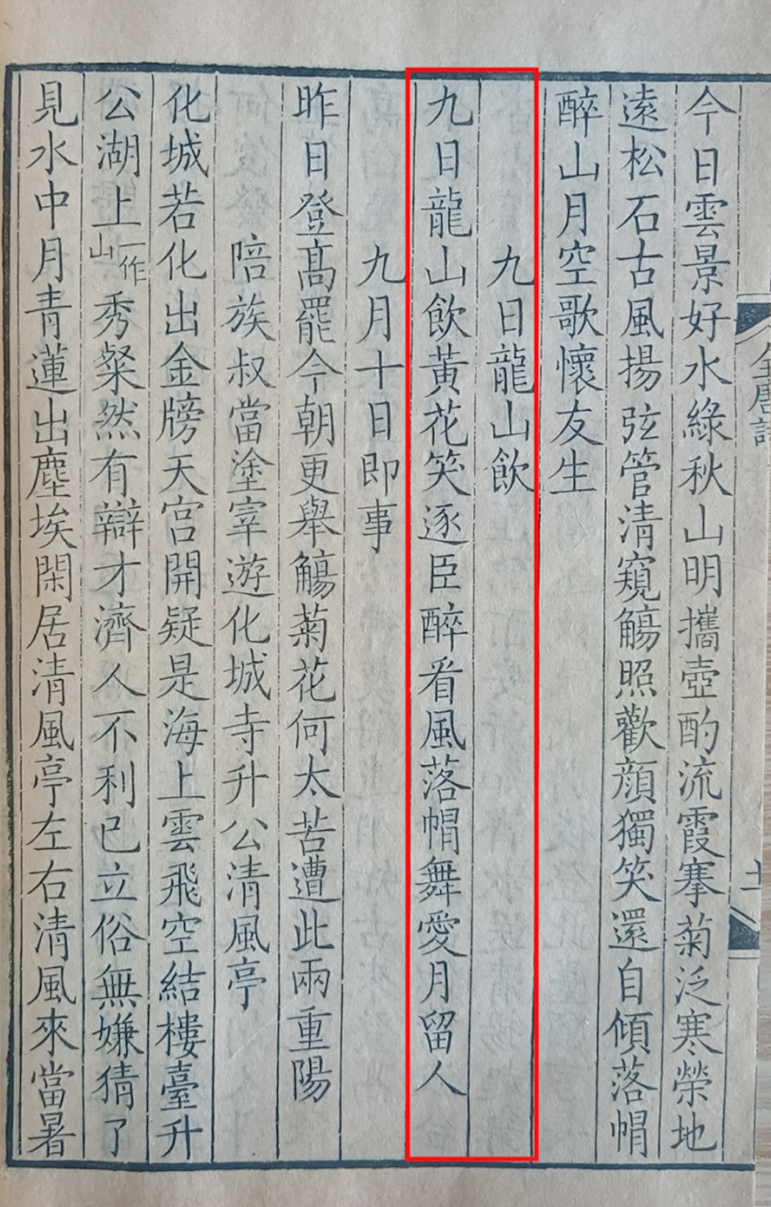 今日雲景好水綠秋山明攜壺酌流霞搴菊泛寒榮地
遠松石古風揚弦管清窺觴照歡顏獨笑還自傾落帽
醉山月空歌懷友生
九日龍山飲
九日龍山飲黃花笑逐臣醉看風落帽舞愛月留人
九月十日即事
昨日登高罷今朝更舉觴菊花何太苦遭此兩重陽
陪族叔當塗宰遊化城寺升公清風亭
化城若化出金牓天宮開疑是海上雲飛空結樓臺升
公湖上一作山秀粲然有辯才濟人不利已立俗無嫌猜了
見水中月青蓮出塵埃閑居清風亭左右清風來當暑
全唐詩